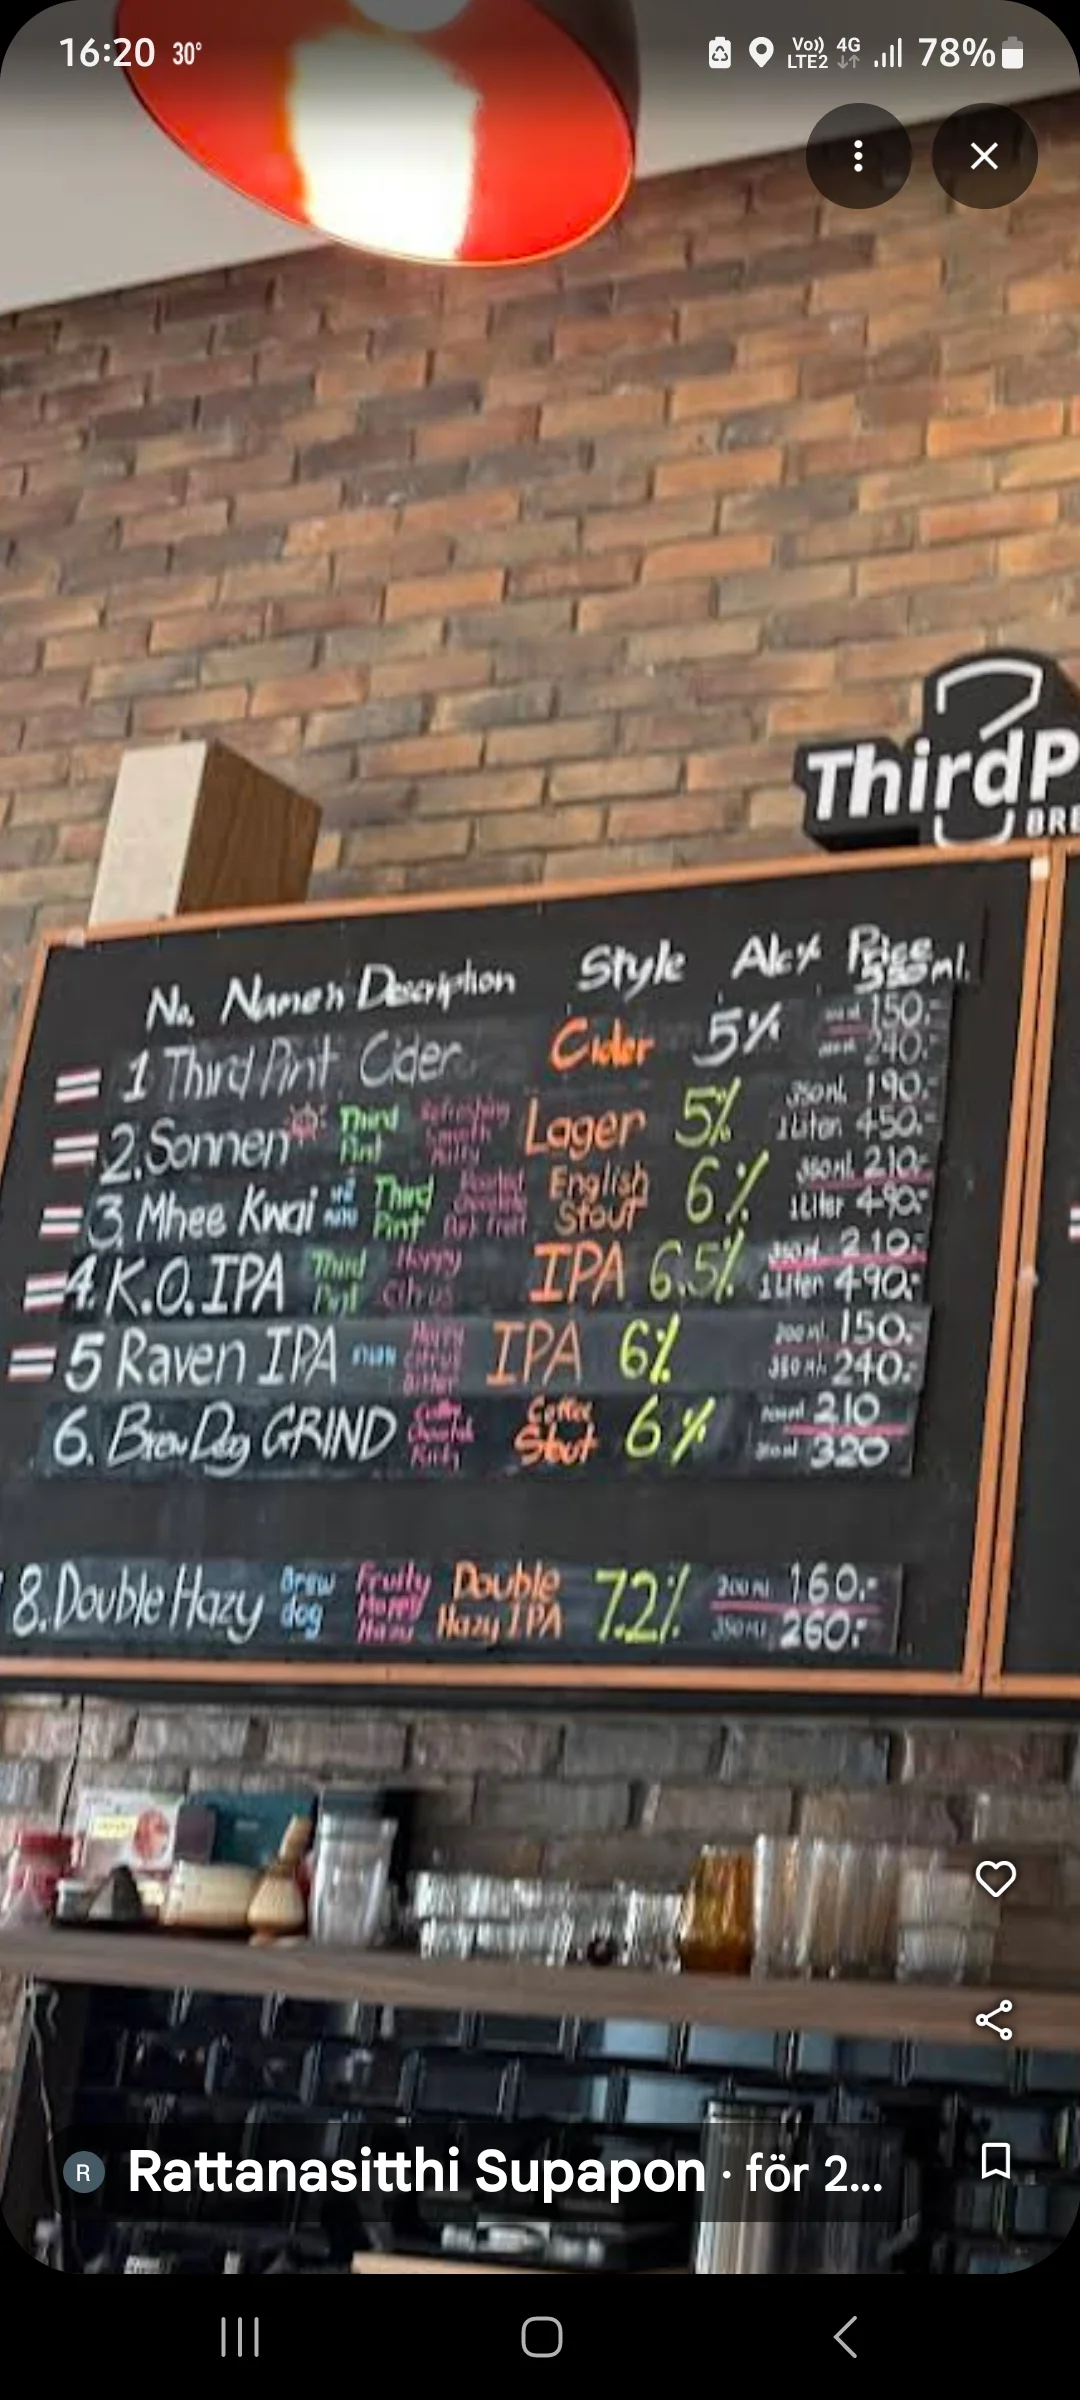 16:20 30°
Vo)) LTE2 4G 78%
ThirdP
BRE
No. Name'n Description Style Alc% Price
1 Third Pint Cider Cider 5% 150.-
240.-
2. Sonnen Third Pint Refreshing Smooth Lager 5% 350ml. 190.-
1 Liter 450.-
3. Mhee Kwai Third Pint Roasted Chocolate Dark Fruit English Stout 6% 350ml. 210.-
1 Liter 490.-
4. K.O. IPA Third Pint Hoppy Citrus IPA 6.5% 350ml. 210.-
1 Liter 490.-
5 Raven IPA IPA 6% 200 ml. 150.-
350 ml. 240.-
6. BrewDog GRIND Coffee Stout 6% 210
320
8. Double Hazy Brew dog Fruity Hoppy Hazy Double Hazy IPA 7.2% 200 ml. 160.-
350 ml. 260.-
R Rattanasitthi Supapon · för 2...